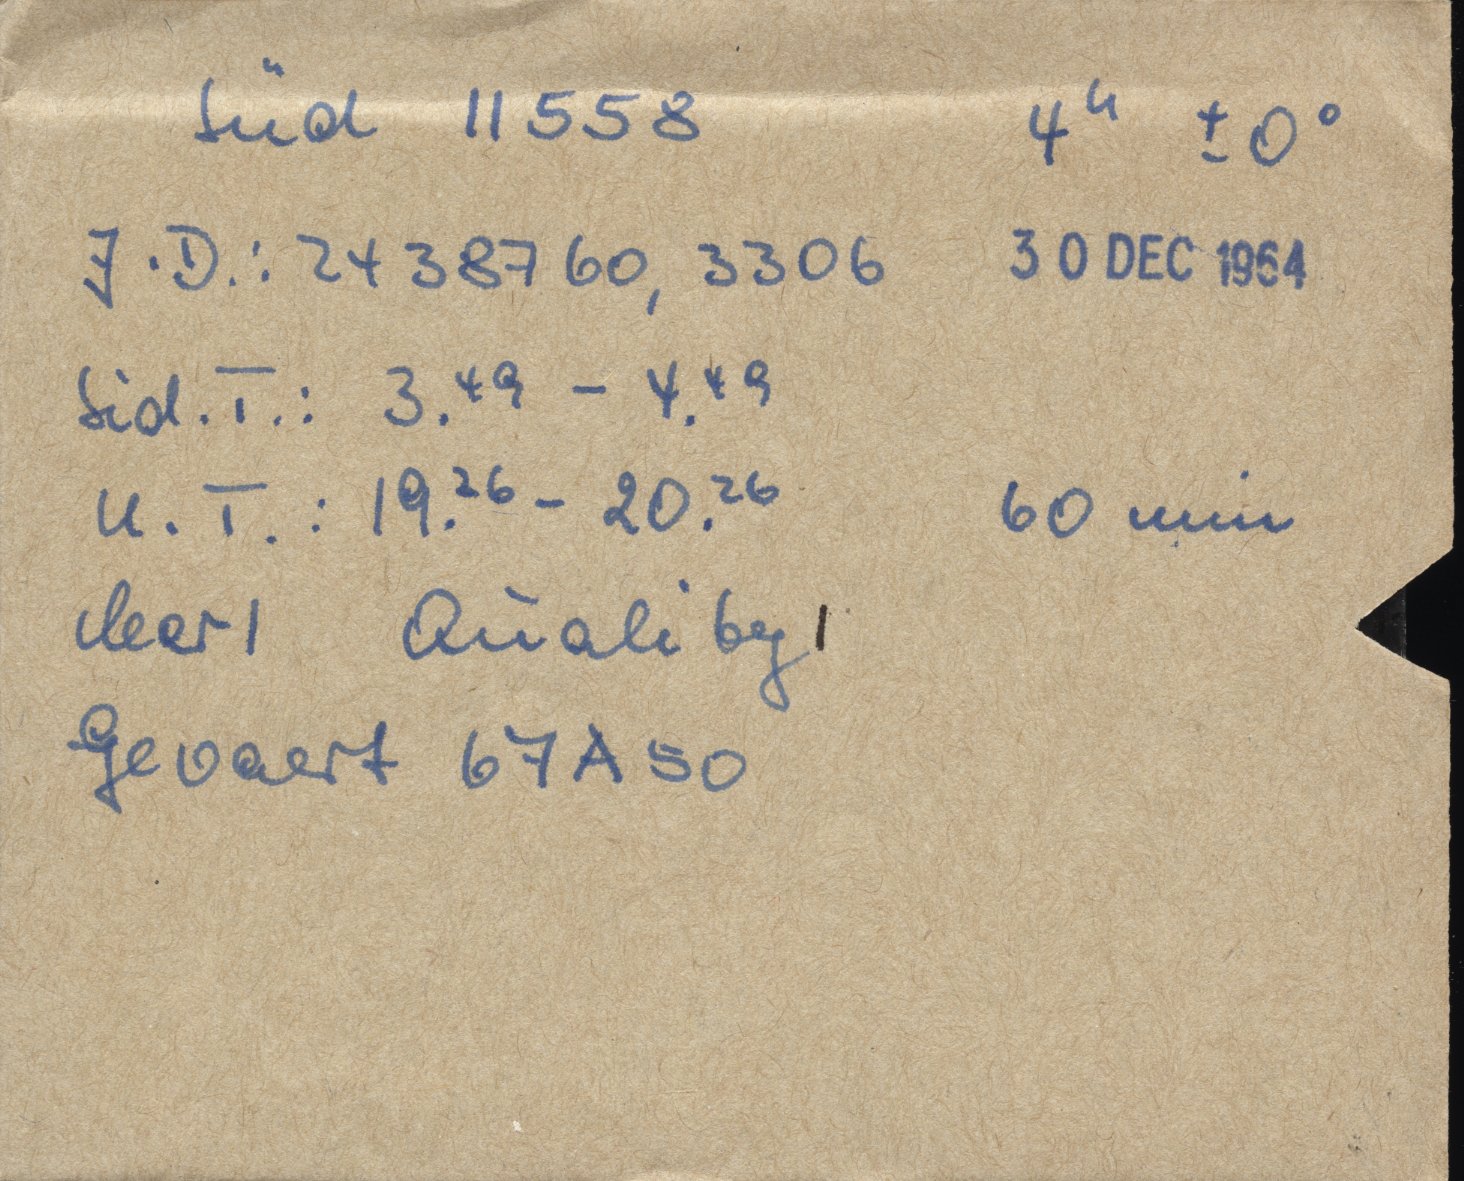 Süd 11558 4ʰ ±0°
J.D.: 2438760,3306 30 DEC 1964
Sid.T.: 3.⁴⁹ – 4.⁴⁹
U.T.: 19.²⁶ – 20.²⁶ 60 min
clear 1 Quality 1
Gevaert 67A50